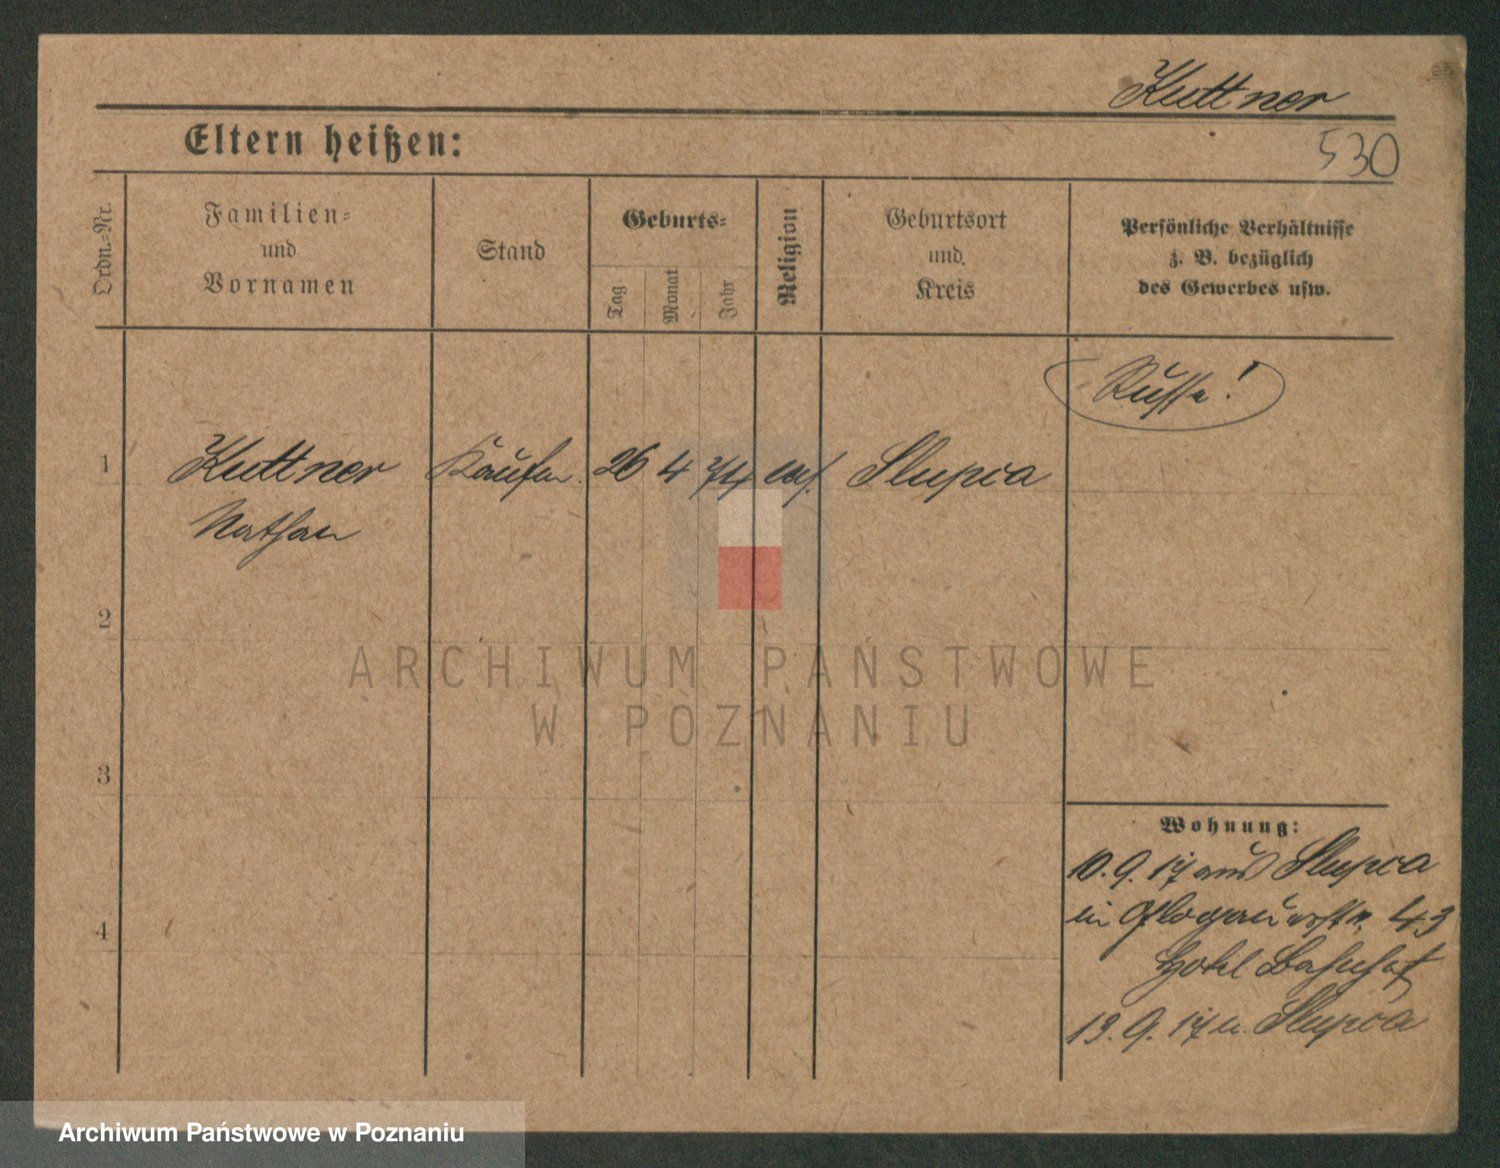 Kuttner
530
Eltern heißen:
Ordn.-Nr.
Familien-
und
Vornamen
Stand
Geburts-
Tag
Monat
Jahr
Religion
Geburtsort
und
Kreis
Persönliche Verhältnisse
z. B. bezüglich
des Gewerbes usw.
Russe!
1 Kuttner Kaufm. 26 4 74 Slupca
Nathan
2
3
4
Wohnung:
10.9.17 aus Slupca
in Glogauerstr. 43
Hotel Bahnhof
13.9.17 n. Slupca
ARCHIWUM PAŃSTWOWE
W POZNANIU
Archiwum Państwowe w Poznaniu